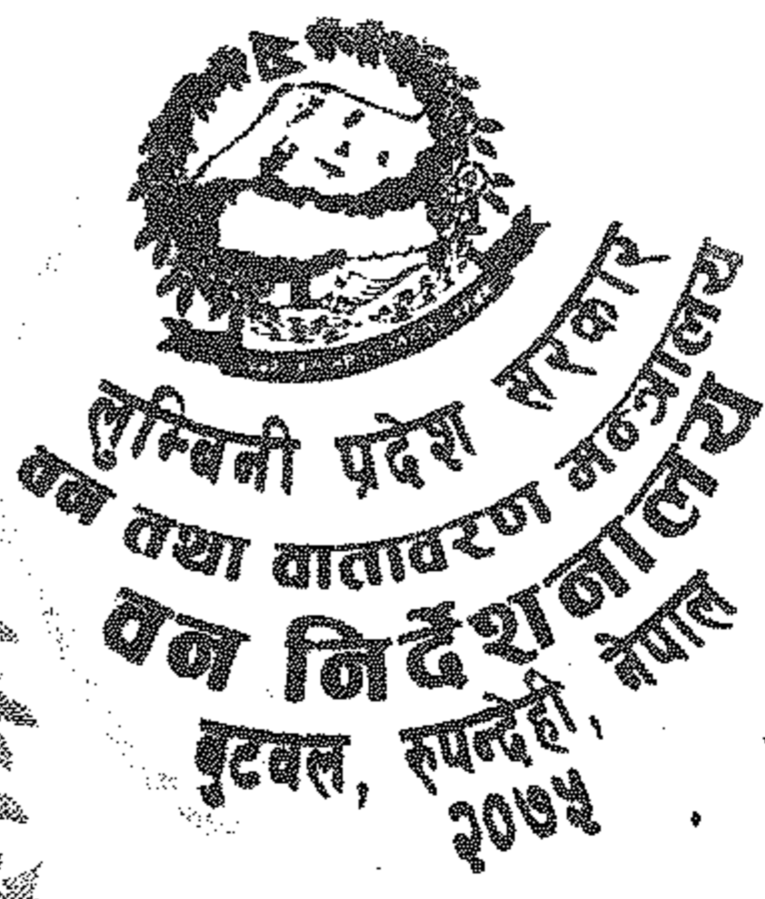 लुम्बिनी प्रदेश सरकार
वन तथा वातावरण मन्त्रालय
वन निर्देशनालय
बुटवल, रुपन्देही, नेपाल
२०७५